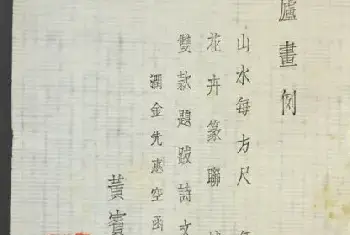 廬畫例
山水每方尺
花卉篆聯
雙款題跋詩文
潤金先惠空函
黃賓